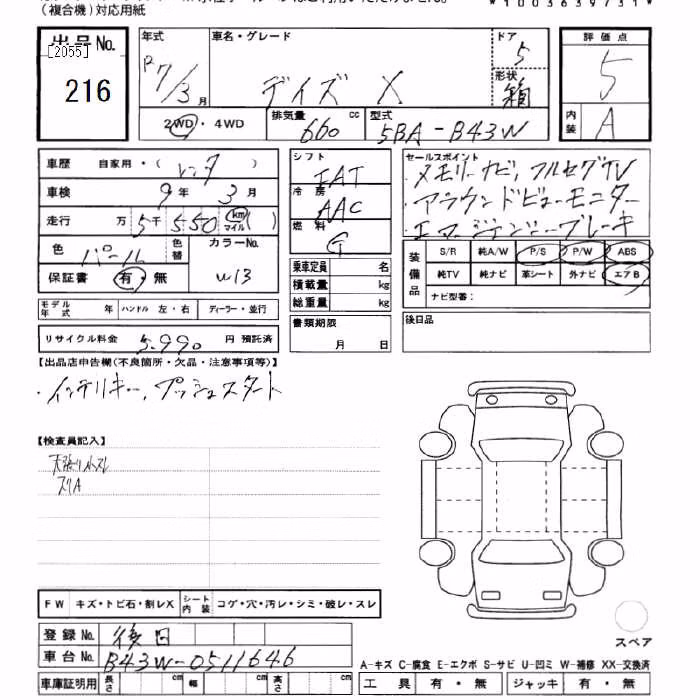 (複合機)対応用紙
*1003639731*
出品No.
[2055]
216
年式 R7/3月
車名・グレード デイズ X
ドア 5
形状 箱
評価点 5
内装 A
2WD・4WD
排気量 660 cc
型式 5BA-B43W
車歴 自家用・(レンタ)
車検 9年 3月
走行 万 5千 550 km マイル ( )
色 パール
色替
カラーNo. W13
保証書 有・無
モデル年式 年 ハンドル 左・右 ディーラー・並行
リサイクル料金 5,990 円 預託済
シフト IAT
冷房 AAC
燃料 G
乗車定員 名
積載量 kg
総重量 kg
書類期限 月 日
セールスポイント
・メモリーナビ,フルセグTV
・アラウンドビューモニター
・エマージェンシーブレーキ
装備品
S/R 純A/W P/S P/W ABS
純TV 純ナビ 革シート 外ナビ エアB
ナビ型番:
後日品
【出品店申告欄(不良箇所・欠品・注意事項等)】
・インテリキー,プッシュスタート
【検査員記入】
スリA
FW キズ・トビ石・割レX シート内装 コゲ・穴・汚レ・シミ・破レ・スレ
登録No. 後日
車台No. B43W-0511646
車庫証明用 長さ cm 幅 cm 高さ cm
スペア
A-キズ C-腐食 E-エクボ S-サビ U-凹ミ W-補修 XX-交換済
工具 有・無 ジャッキ 有・無